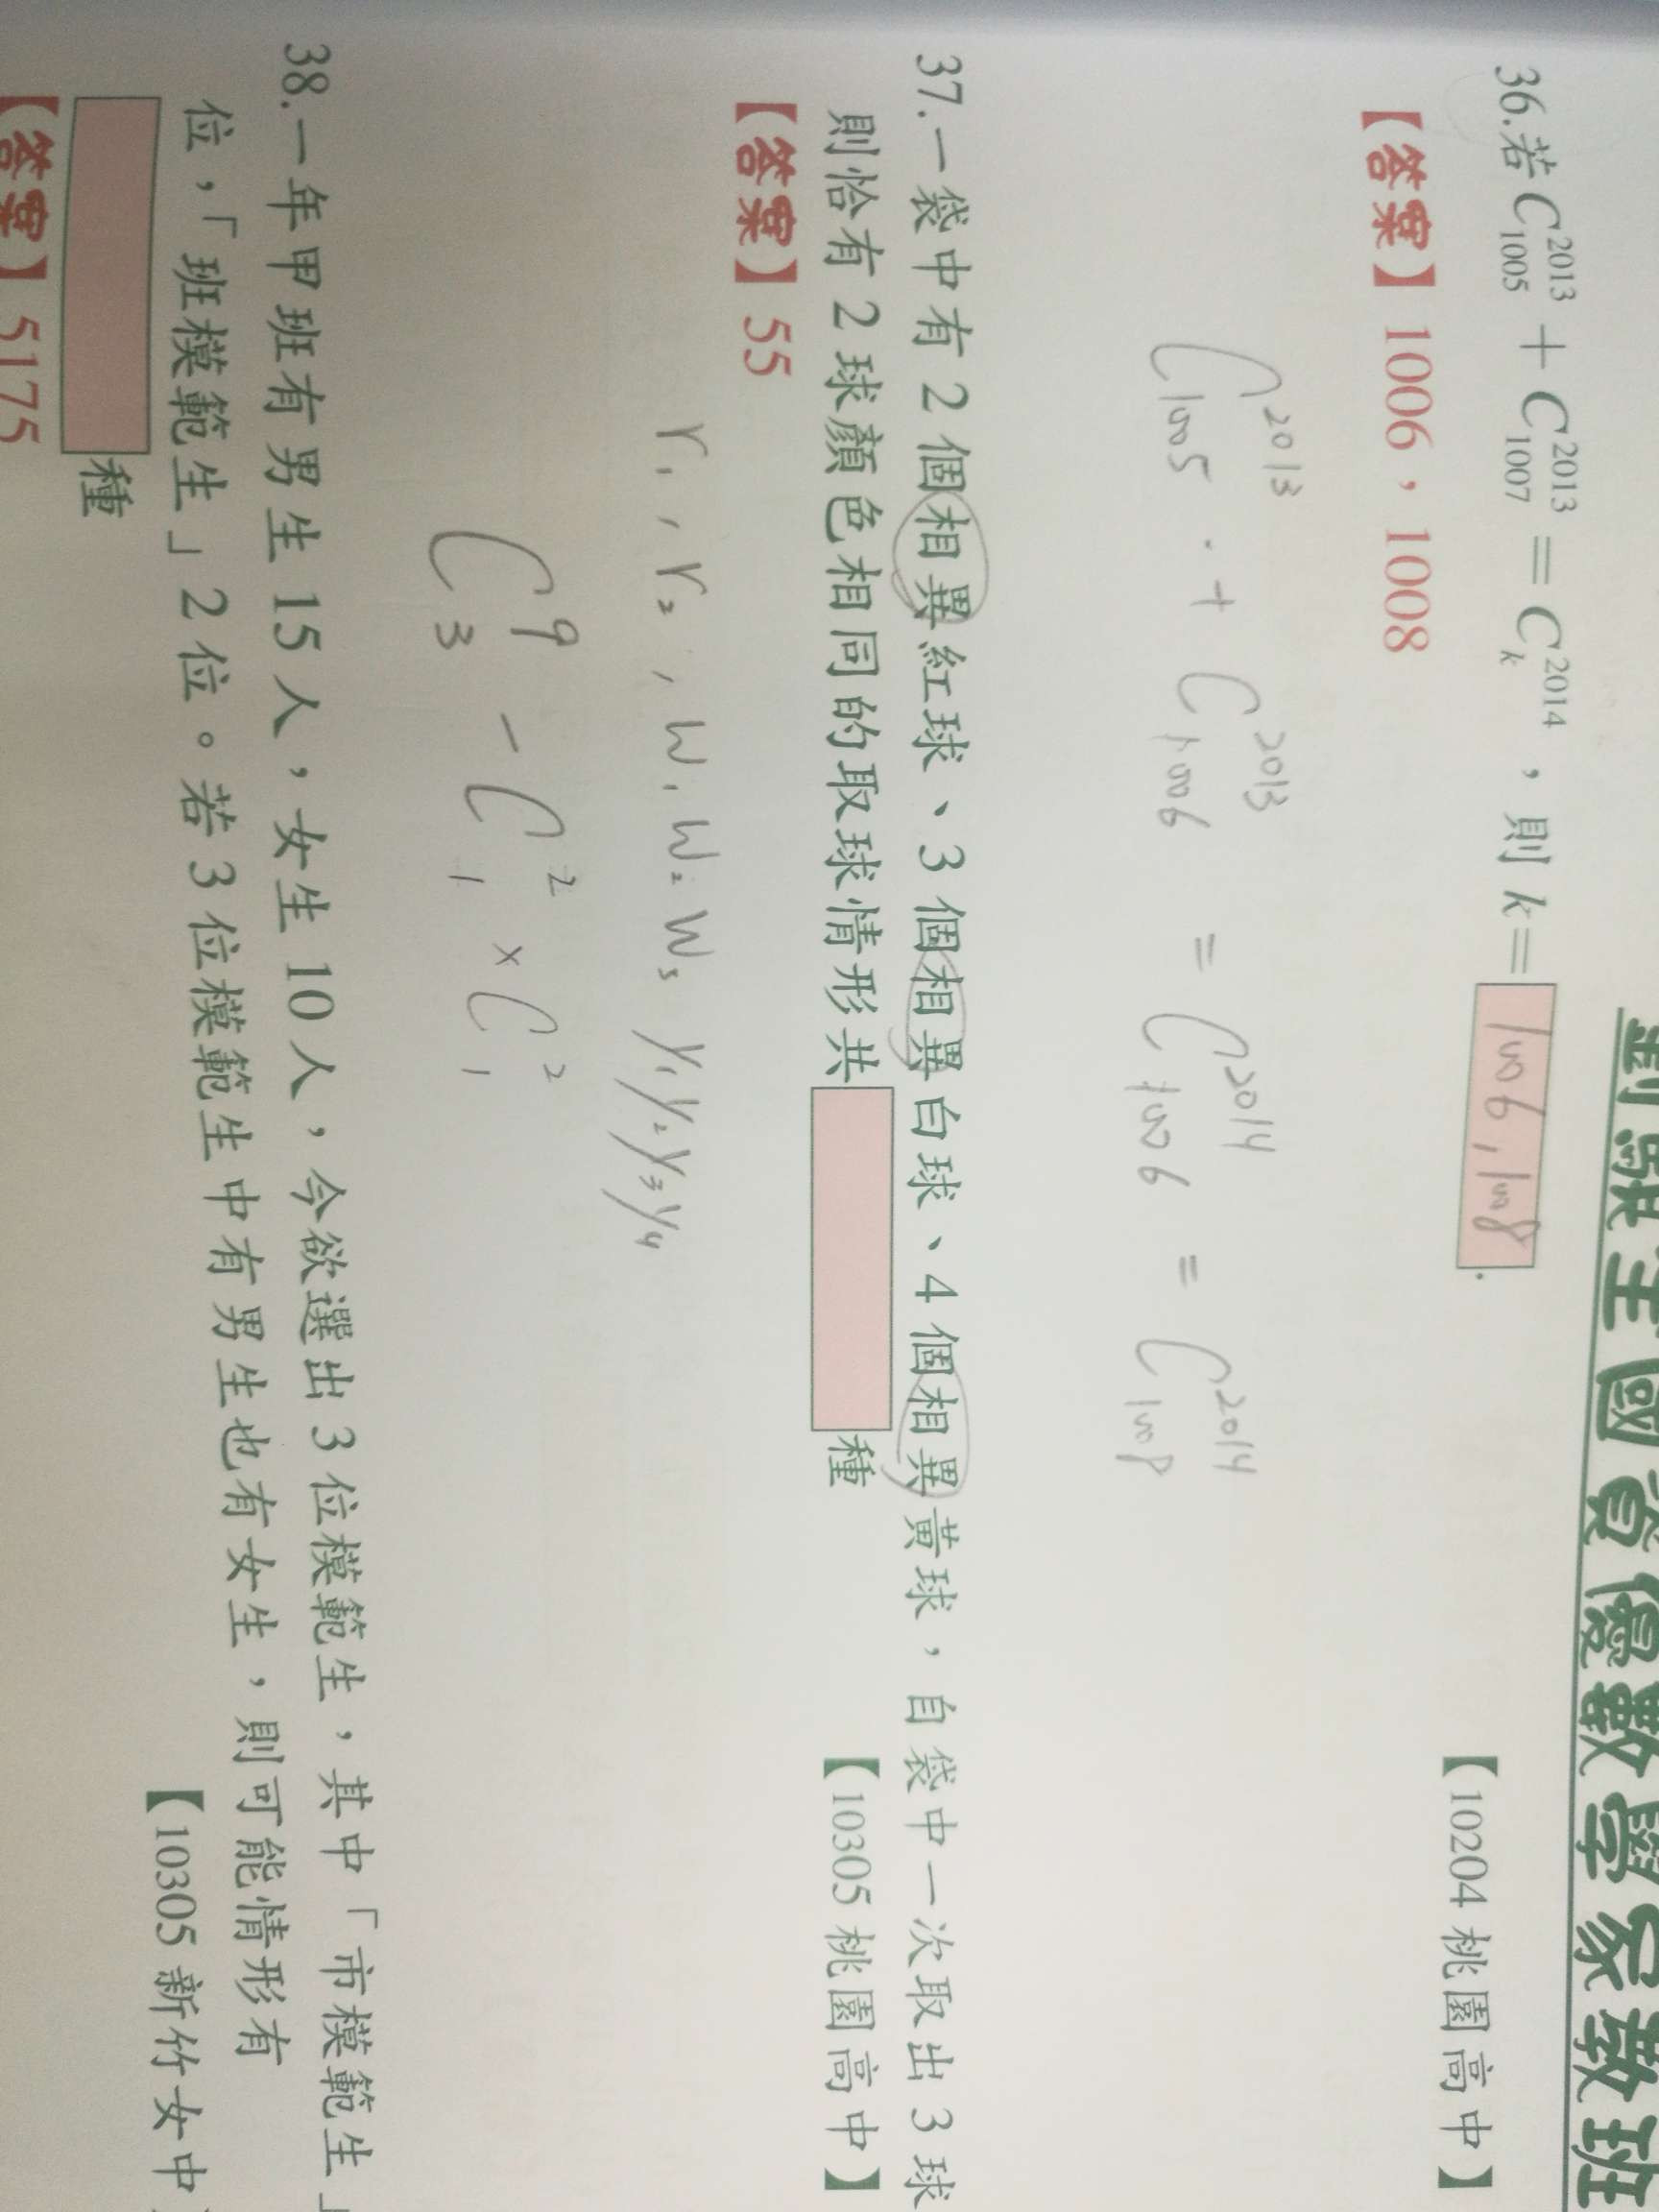 劉騏主國資優數學家教班
36.若C^{2013}_{1005}+C^{2013}_{1007}=C^{2014}_{k}，則k=1006,1008.
【10204 桃園高中】
【答案】1006，1008
C^{2013}_{1005}·+C^{2013}_{1006}=C^{2014}_{1006}=C^{2014}_{1008}
37.一袋中有2個相異紅球、3個相異白球、4個相異黃球，自袋中一次取出3球
則恰有2球顏色相同的取球情形共 種
【10305 桃園高中】
【答案】55
r₁,r₂,W₁W₂W₃ Y₁Y₂Y₃Y₄
C^{9}_{3}-C^{2}_{1}×C^{2}_{1}
38.一年甲班有男生15人，女生10人，今欲選出3位模範生，其中「市模範生」
位，「班模範生」2位。若3位模範生中有男生也有女生，則可能情形有
種
【10305 新竹女中】
【答案】5175